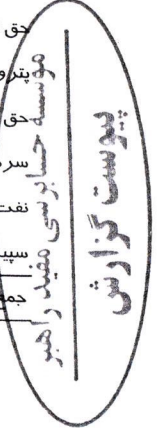 حق
پترو
حق
سر
نفت
سپید
جمع
موسسه حسابرسی مفید راهبر
پیوست گزارش